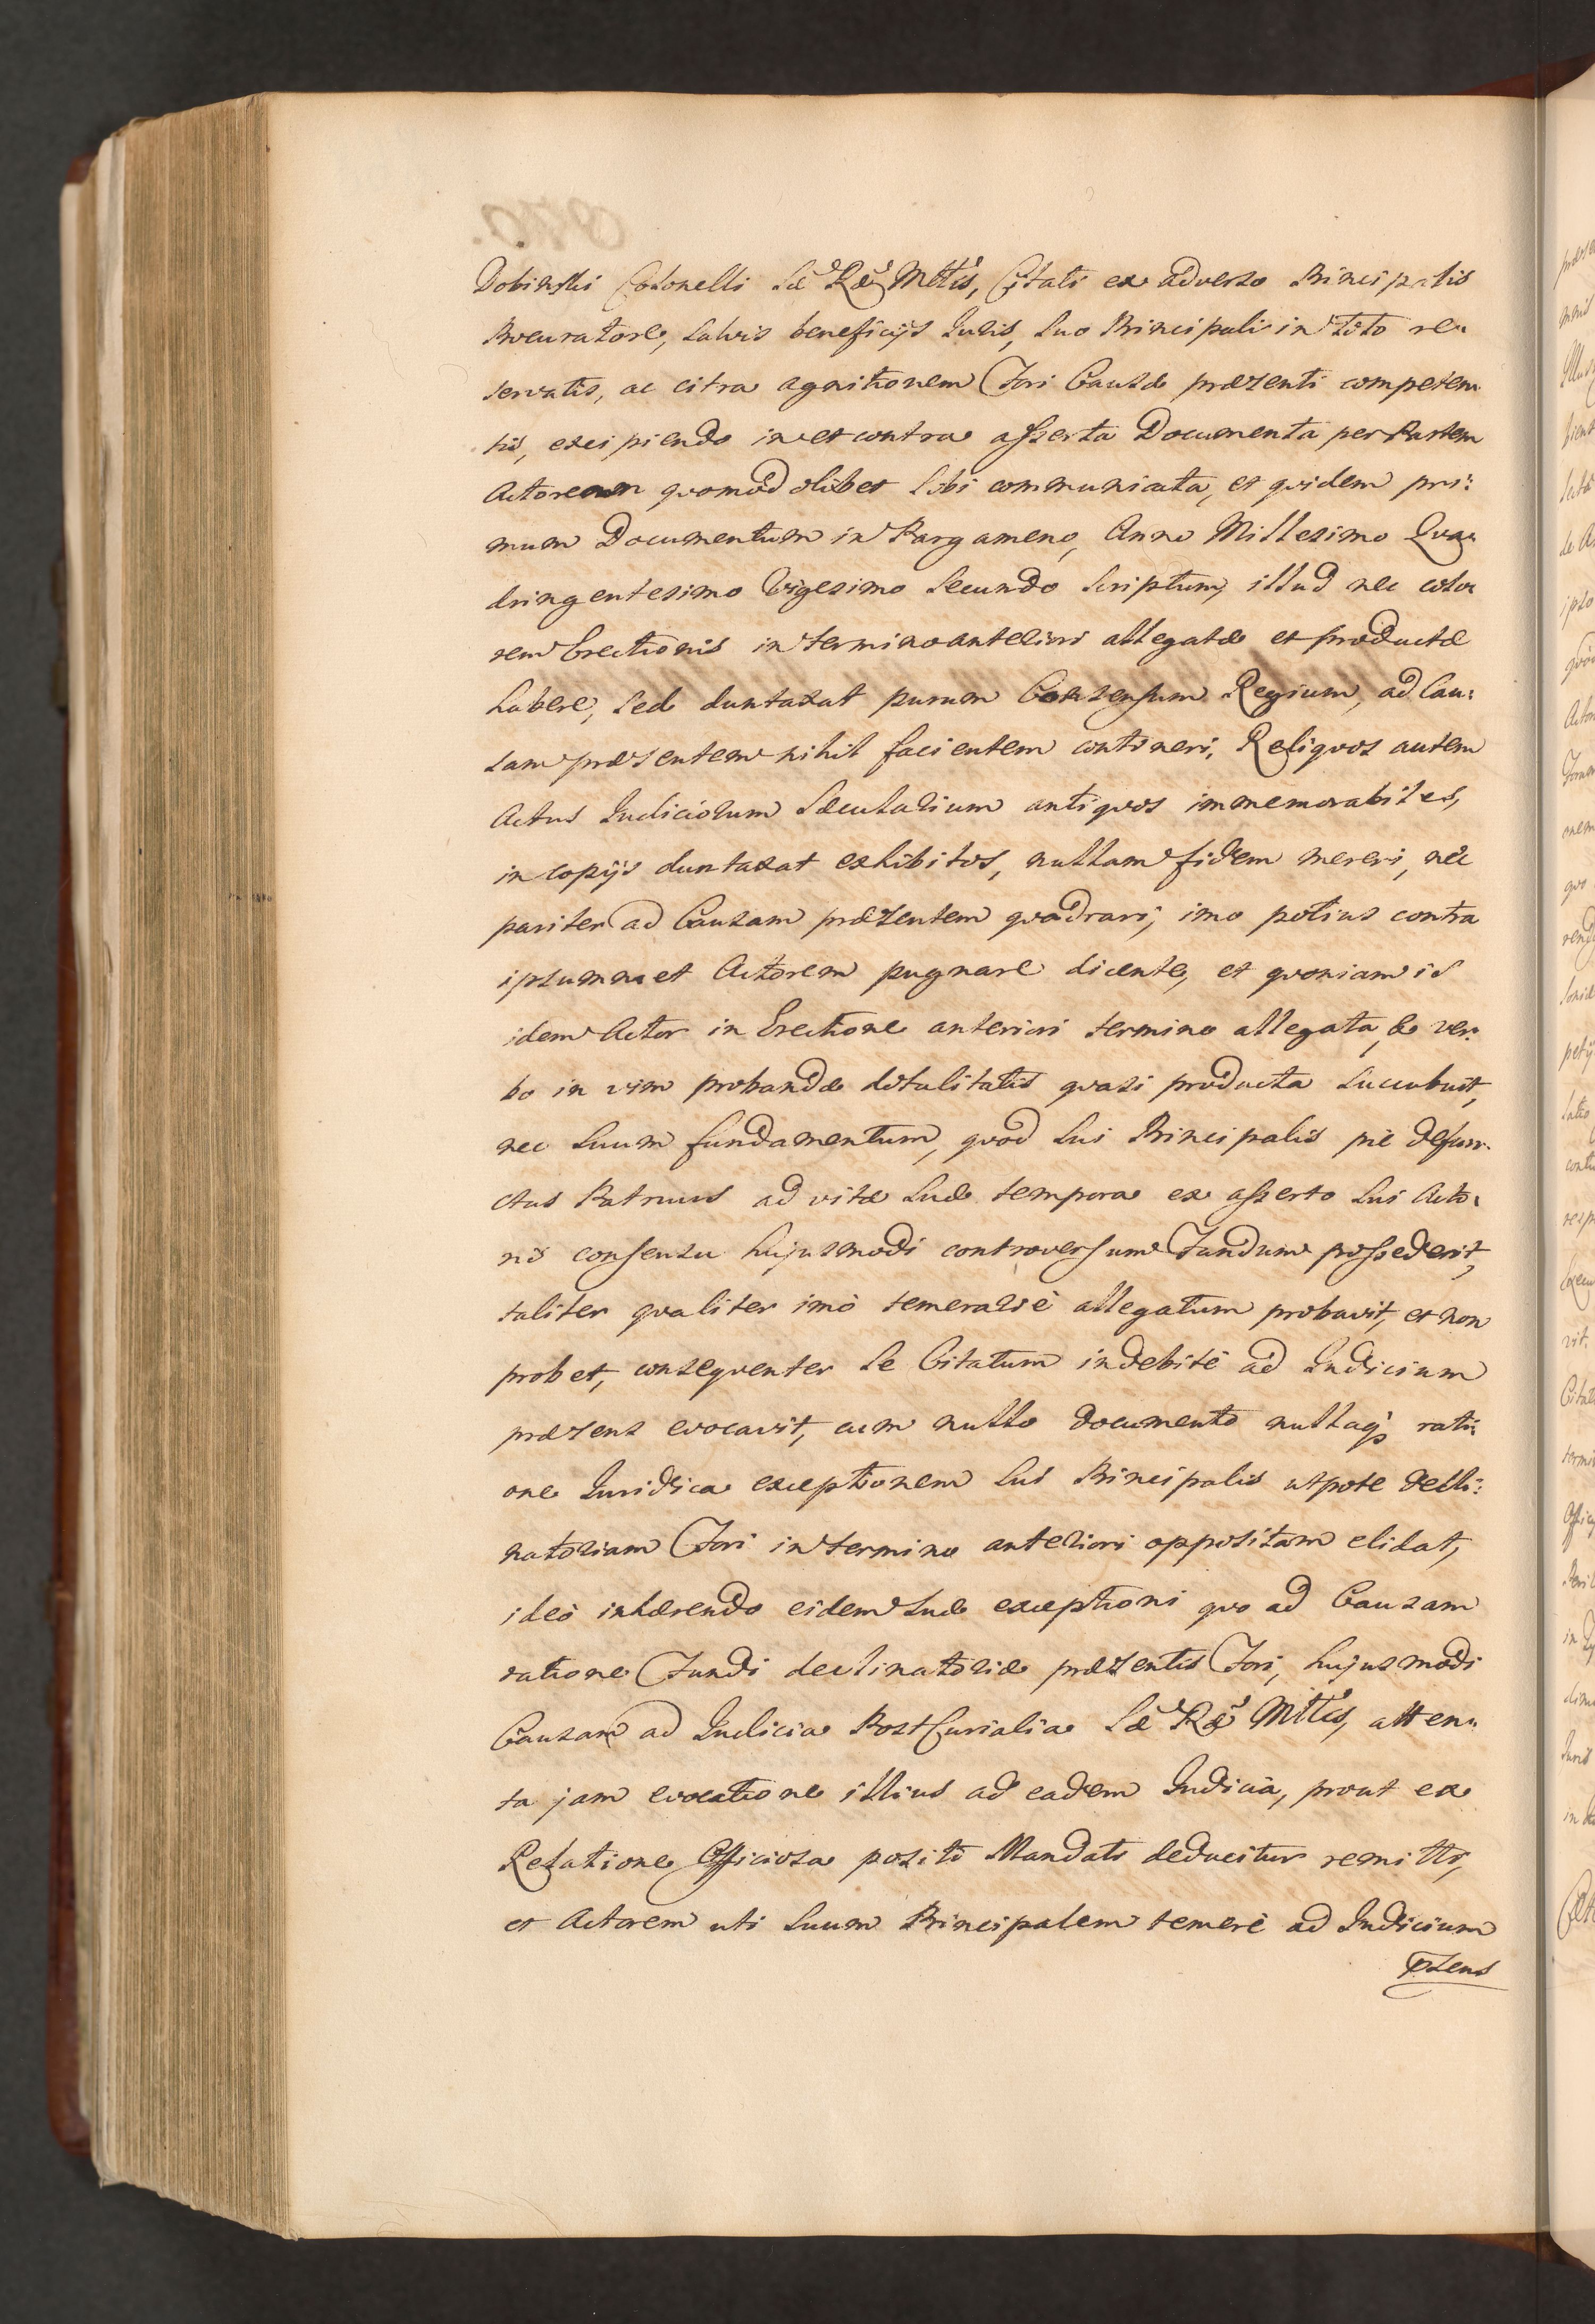 Dobinski Colonelli Sæ Ræ Mttis, Citati ex adverso Principalis
Procuratore, salvis beneficijs Juris, suo Principali in toto re„
servatis, ac citra agnitionem Fori Causæ præsenti competen„
tis, excipiendo in et contra asserta Documenta per Partem
Actoream quomodolibet sibi communicata, et quidem pri:
mum Documentum in Pargameno, Anno Millesimo Qua„
dringentesimo Vigesimo Secundo scriptum, illud nec colo„
rem Erectionis in termino anteriori allegatæ et productæ
habere, sed duntaxat purum Consensum Regium, ad Cau:
sam præsentem nihil facientem contineri, Reliquos autem
Actus Judiciorum Sæcularium antiquos immemorabiles,
in copijs duntaxat exhibitos, nullam fidem mereri, nec
pariter ad Causam præsentem quadrari, imo potius contra
ipsummet Actorem pugnare dicente, et quoniam is
idem Actor in Erectione anteriori termino allegata, & ver„
bo in vim probandæ dotalitatis quasi producta succubuit,
nec suum fundamentum, quod sui Principalis piè defun„
ctus Patruus ad vitæ suæ tempora ex asserto sui Acto„
ris consensu hujusmodi controversum Fundum possederit,
taliter qualiter imò temerariè allegatum probavit, et non
probet, consequenter se Citatum indebitè ad Judicium
præsens evocavit, cum nullo documento nullaq; rati„
one Juridica exceptionem sui Principalis utpote decli:
natoriam Fori in termino anteriori oppositam elidat,
ideò inhærendo eidem suæ exceptioni quo ad Causam
ratione Fundi declinatoriæ præsentis Fori, hujusmodi
Causam ad Judicia Post Curialia Sæ Ræ Mttis, atten„
ta jam evocatione illius ad eadem Judicia, prout ex
Relatione Officiosa positi Mandati deducitur remitti,
et Actorem uti suum Principalem temerè ad Judicium
pręsens